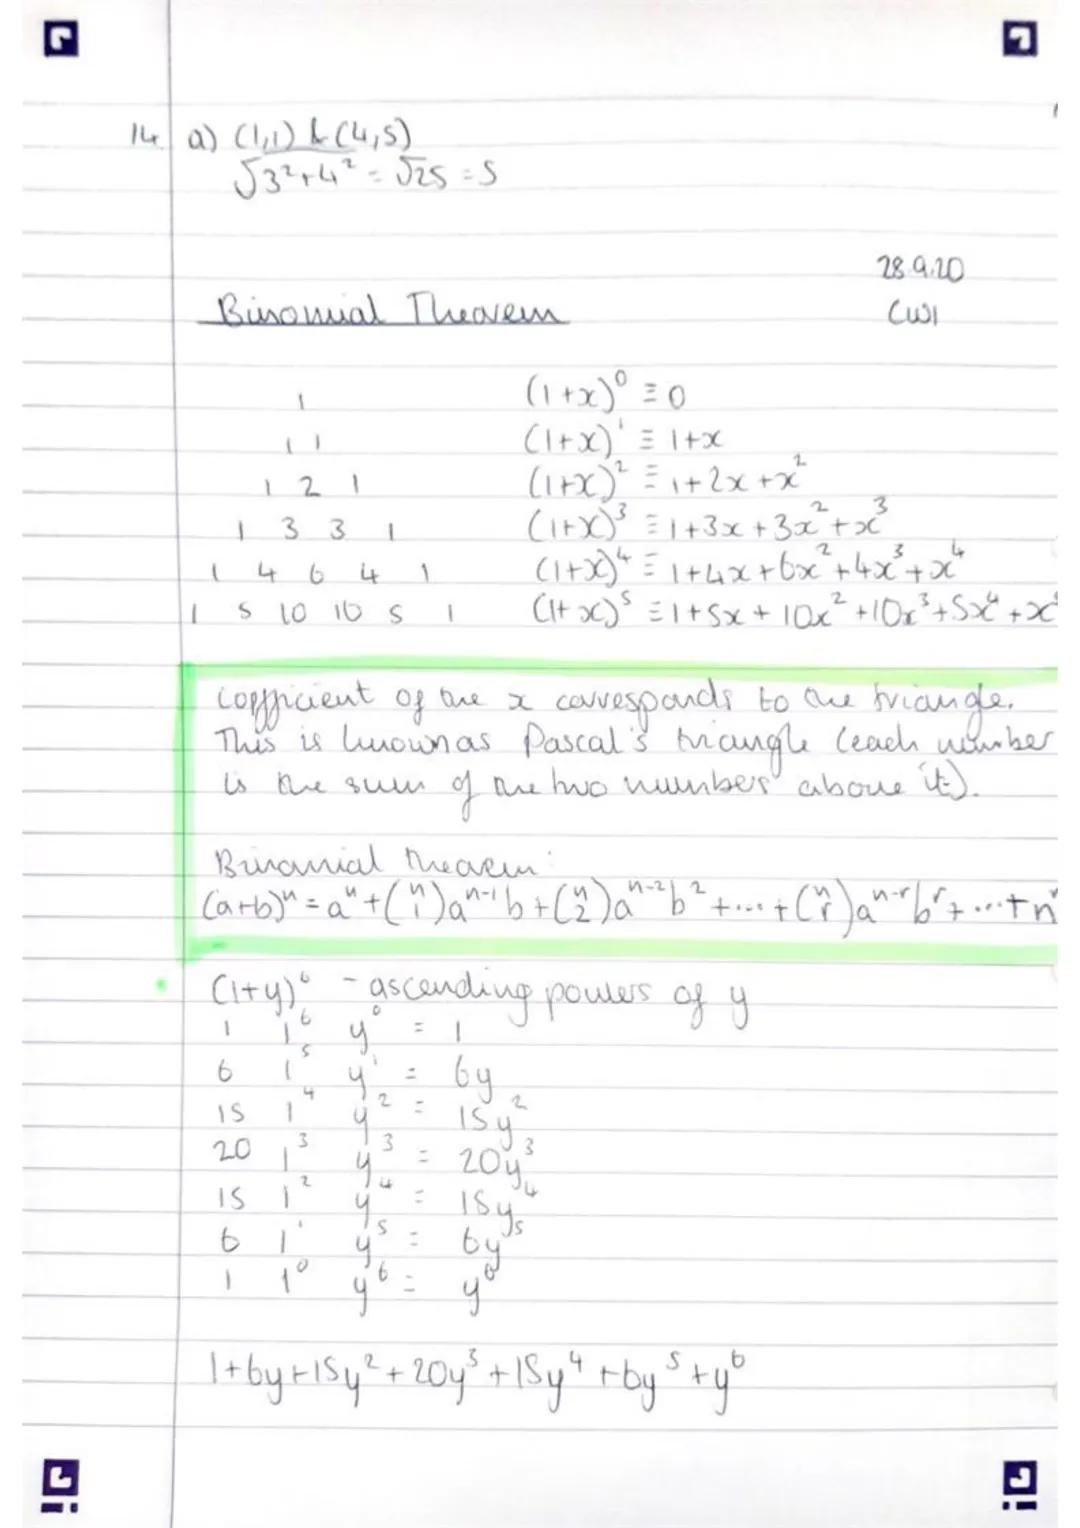 14. a) (1,1) & (4,5)
√3²+4² = √25 = 5
28.9.20
Binomial Theorem
CW1
1 (1+x)⁰ ≡ 0
1 1 (1+x)¹ ≡ 1+x
1 2 1 (1+x)² ≡ 1+2x+x²
1 3 3 1 (1+x)³ ≡ 1+3x+3x²+x³
1 4 6 4 1 (1+x)⁴ ≡ 1+4x+6x²+4x³+x⁴
1 5 10 10 5 1 (1+x)⁵ ≡ 1+5x+10x²+10x³+5x⁴+x
Coefficient of the x corresponds to the triangle.
This is known as Pascal's triangle (each number
is the sum of the two numbers above it).
Binomial theorem:
(a+b)ⁿ = aⁿ + (n 1)aⁿ⁻¹b + (n 2)aⁿ⁻²b² + ... + (n r)aⁿ⁻ʳbʳ + ... + n
(1+y)⁶ - ascending powers of y
1 1⁶ y⁰ = 1
6 1⁵ y¹ = 6y
15 1⁴ y² = 15y²
20 1³ y³ = 20y³
15 1² y⁴ = 15y⁴
6 1¹ y⁵ = 6y⁵
1 1⁰ y⁶ = y⁶
1+6y+15y²+20y³+15y⁴+6y⁵+y⁶